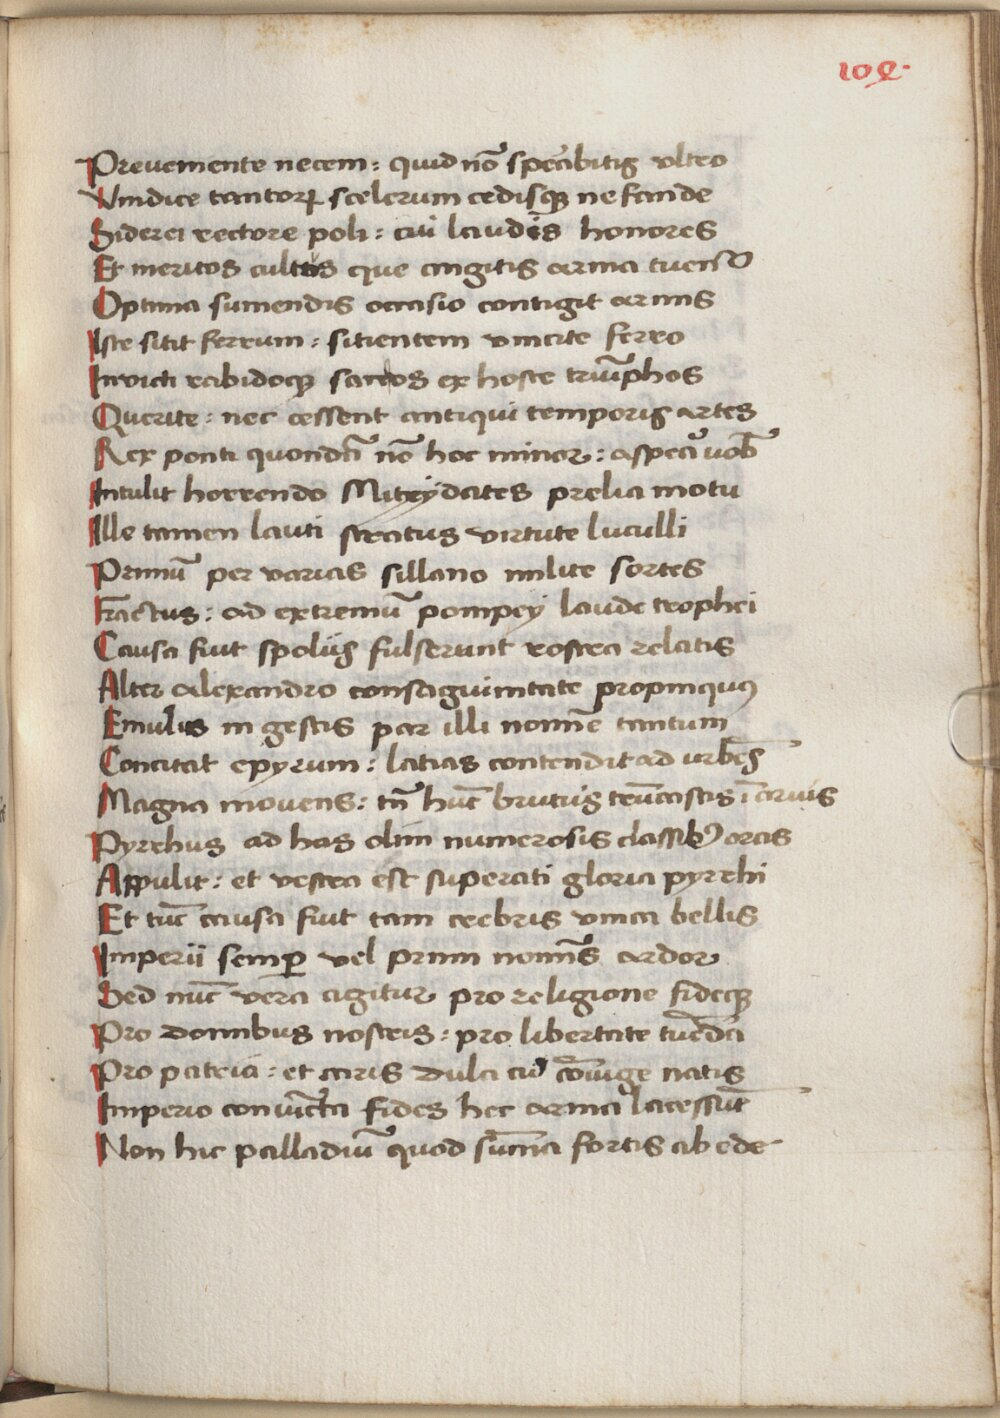 109.
Preuemente necem: quid nō spectabitis vltro
Vindice tantorꝝ scelerum cedisqꝫ nefande
Siderei rectore poli: cui laudis honores
Et meritos cultus que cingitis arma tuendo
Optima sumendis occasio contigit armis
Iste sitit ferrum: sitientem vincite ferro
Inuicti rabidoqꝫ sacros ex hoste triūphos
Querite: nec cessent antiqui temporis artes
Rex ponti quondā nō hoc minor: aspera vob̄
Intulit horrendo Mitrydates prelia motu
Ille tamen lauti stratus virtute luculli
Primū per varias sillano milite sortes
Fractus: ad extremū pompeÿ laude trophei
Causa fuit spolijs fulserunt rostra relatis
Alter alexandro consaguinitate propinquus
Emulus in gestis par illi nomine tantum
Concitat epyrum: latias contendit ad vrbes
Magna mouens: tn̄ hūc brutus trūcastis ī aruis
Pyrrhus ad has olim numerosis classibꝰ oras
Appulit: et vestra est superati gloria pyrrhi
Et tūc causa fuit tam crebris vnica bellis
Imperii semꝑ vel primi nomīs ardor
Sed nūc vera agitur pro religione fideqꝫ
Pro domibus nostris: pro libertate tuēda
Pro patria: et caris dulci cū cōiuge natis
Imperio conuicta fides hec arma lacessūt
Non hic palladiū quod sūma fortis ab ede